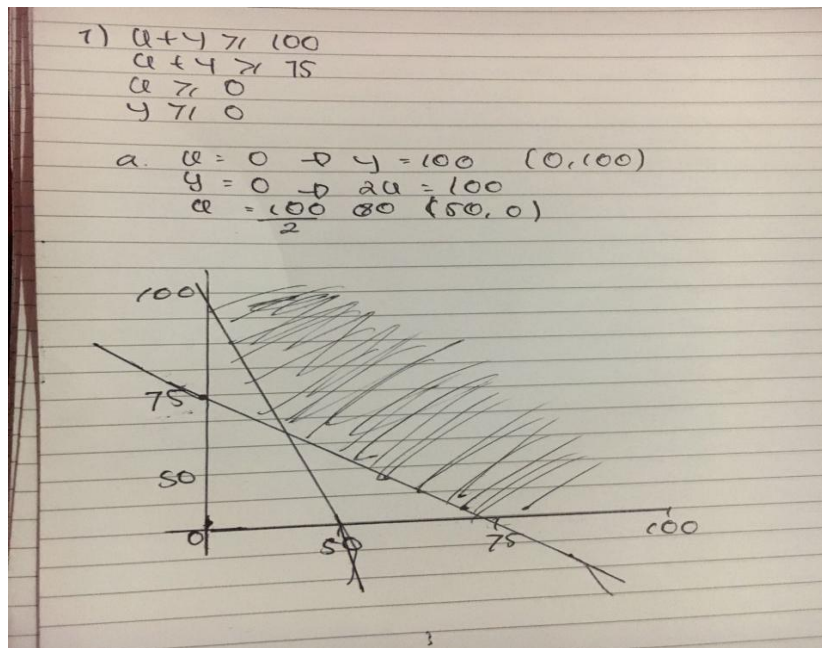 1) x+y ≥ 100
x + y ≥ 75
x ≥ 0
y ≥ 0
a. x = 0 → y = 100 (0,100)
y = 0 → 2x = 100
x = 100/2 80 (50, 0)
100
75
50
0
50
75
100